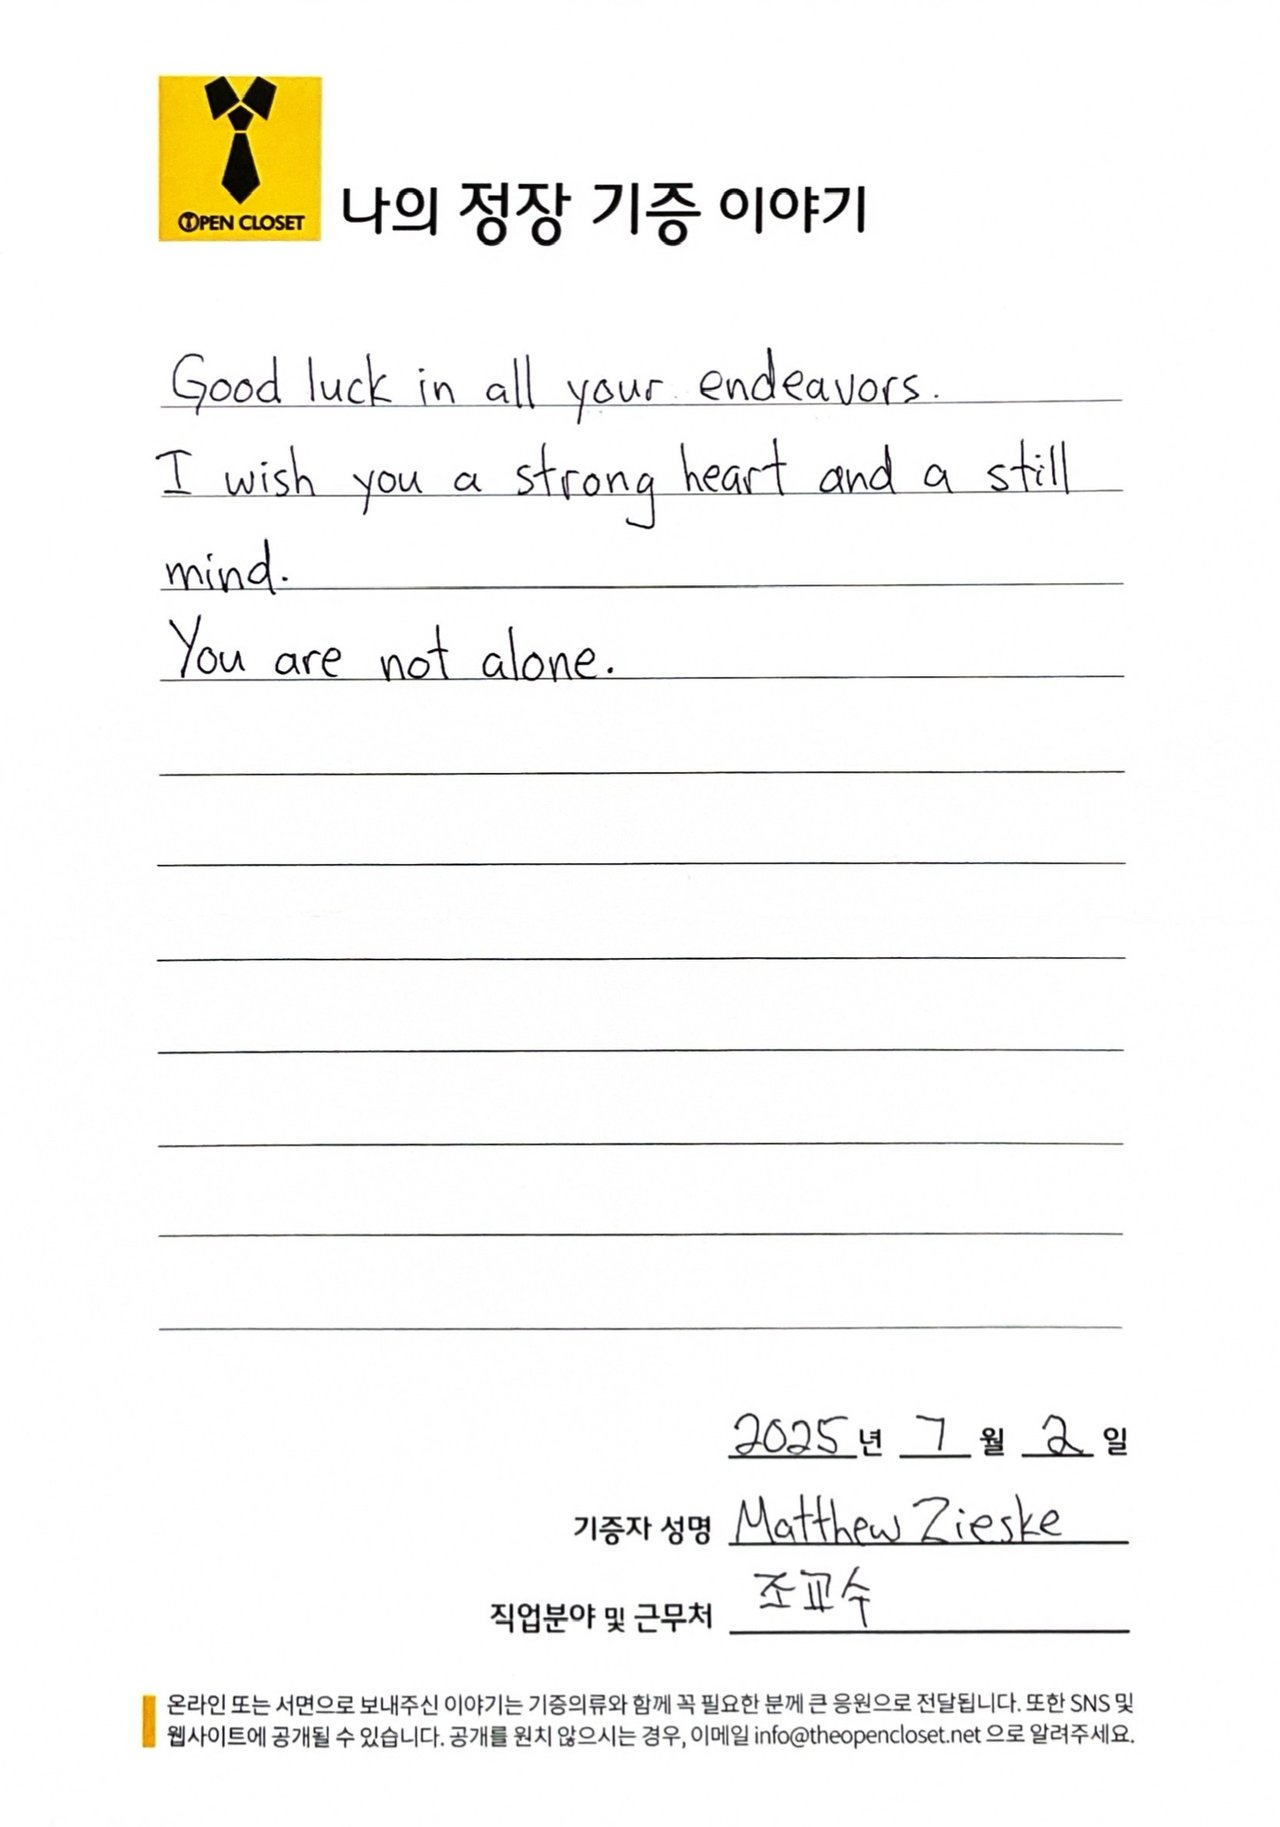 OPEN CLOSET
나의 정장 기증 이야기
Good luck in all your endeavors.
I wish you a strong heart and a still
mind.
You are not alone.
2025년 7 월 2 일
기증자 성명 Matthew Zieske
직업분야 및 근무처 조교수
온라인 또는 서면으로 보내주신 이야기는 기증의류와 함께 꼭 필요한 분께 큰 응원으로 전달됩니다. 또한 SNS 및
웹사이트에 공개될 수 있습니다. 공개를 원치 않으시는 경우, 이메일 info@theopencloset.net 으로 알려주세요.